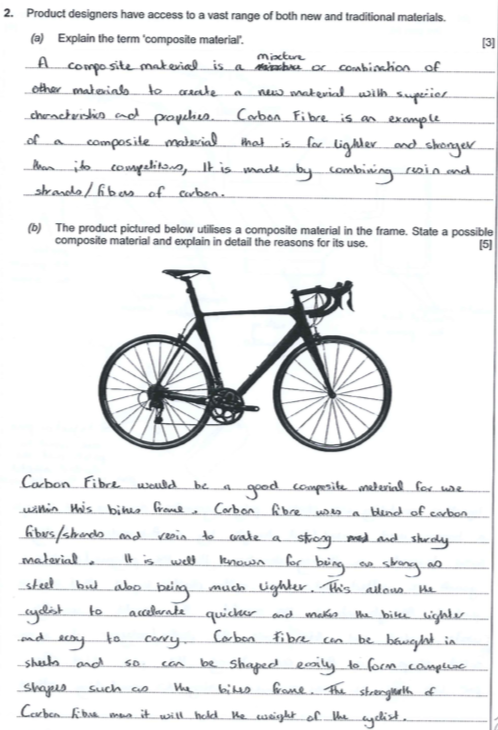 2. Product designers have access to a vast range of both new and traditional materials.
(a) Explain the term 'composite material'. [3]
mixture
A composite material is a or combination of
other materials to create a new material with superior
characteristics and properties. Carbon Fibre is an example
of a composite material that is far lighter and stronger
than its competitors, It is made by combining resin and
strands/fibers of carbon.
(b) The product pictured below utilises a composite material in the frame. State a possible
composite material and explain in detail the reasons for its use. [5]
Carbon Fibre would be a good composite material for use
within this bikes frame. Carbon fibre uses a blend of carbon
fibers/strands and resin to create a strong and sturdy
material. It is well known for being as strong as
steel but also being much lighter. This allows the
cyclist to accelarate quicker and makes the bike lighter
and easy to carry. Carbon Fibre can be bought in
sheets and so can be shaped easily to form complex
shapes such as the bikes frame. The strenghth of
Carbon fibre it will hold the weight of the cyclist.